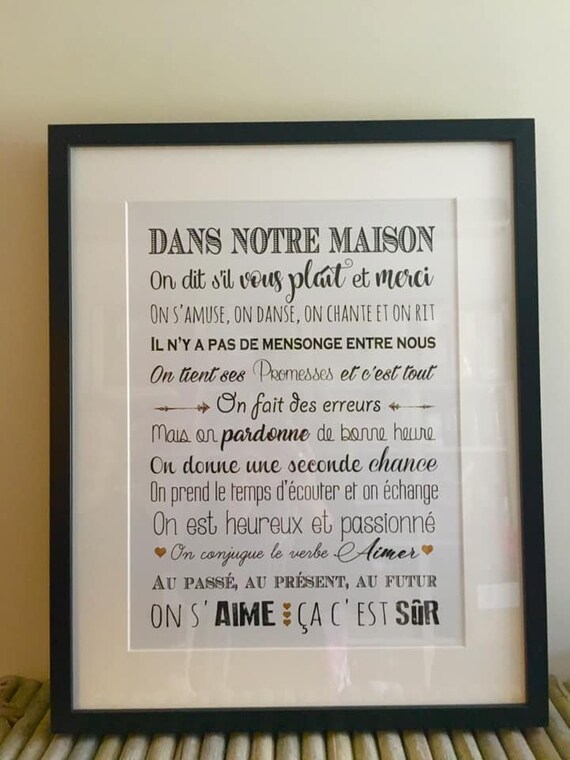 DANS NOTRE MAISON
On dit s'il vous plaît et merci
ON S'AMUSE, ON DANSE, ON CHANTE ET ON RIT
IL N'Y A PAS DE MENSONGE ENTRE NOUS
On tient ses Promesses et c'est tout
On fait des erreurs
Mais on pardonne de bonne heure
On donne une seconde chance
On prend le temps d'écouter et on échange
On est heureux et passionné
On conjugue le verbe Aimer
AU PASSÉ, AU PRÉSENT, AU FUTUR
ON S'AIME ÇA C'EST SÛR